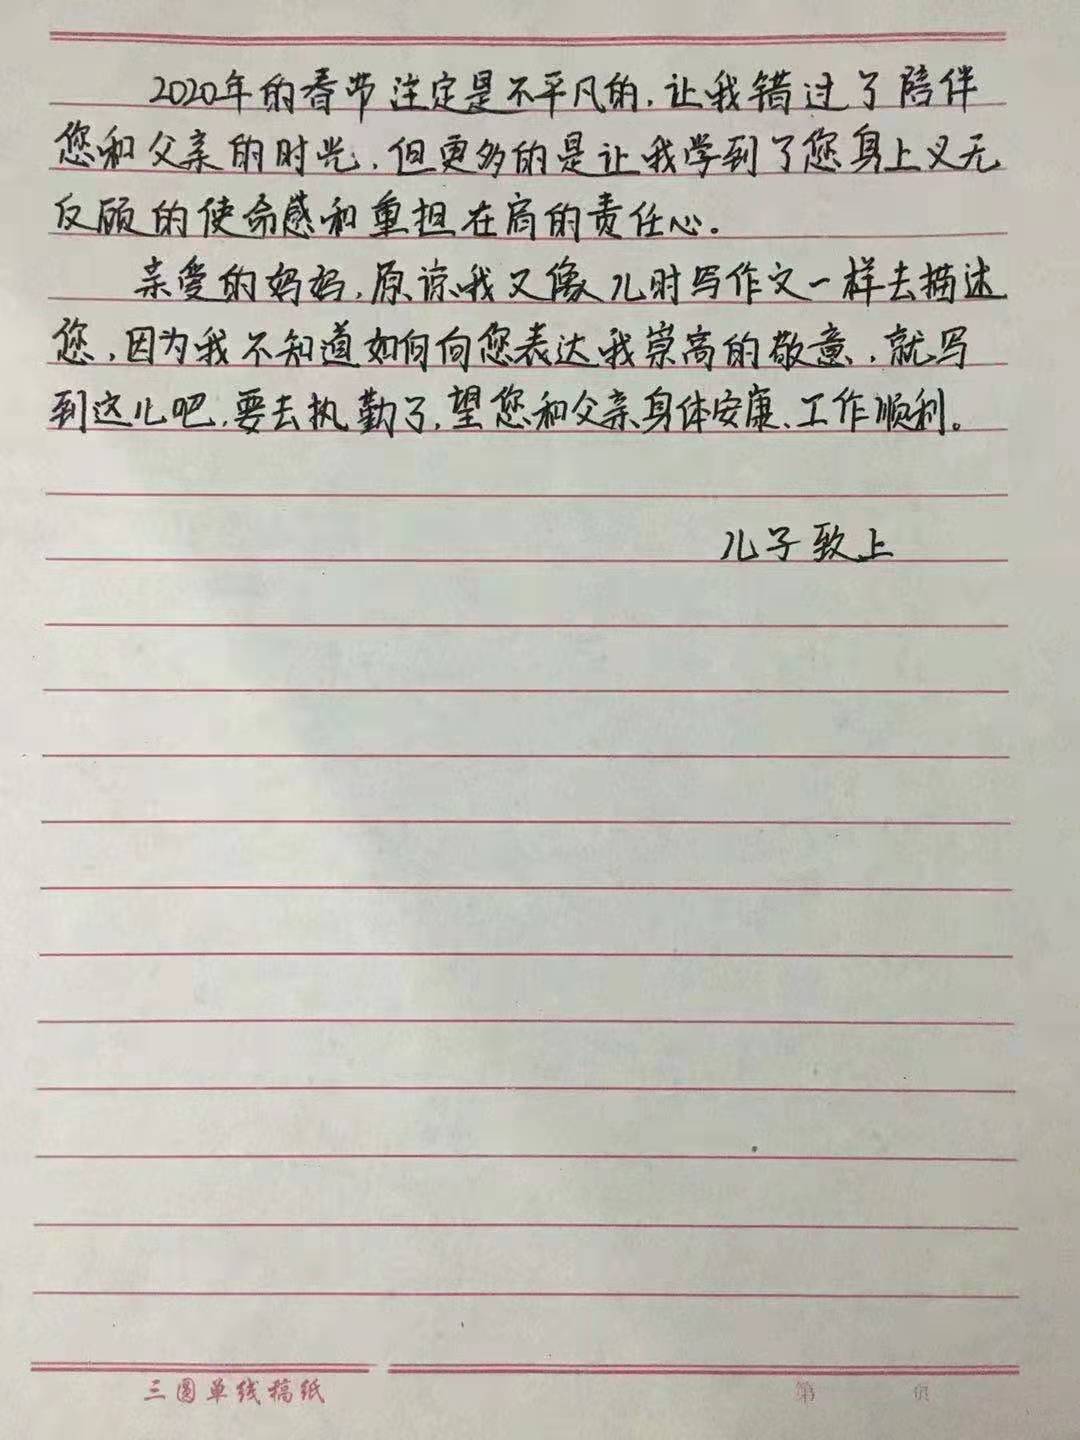 2020年的春节注定是不平凡的,让我错过了陪伴
您和父亲的时光,但更多的是让我学到了您身上义无
反顾的使命感和重担在肩的责任心。
亲爱的妈妈,原谅我又像儿时写作文一样去描述
您,因为我不知道如何向您表达我崇高的敬意,就写
到这儿吧,要去执勤了,望您和父亲身体安康、工作顺利。
儿子致上
三圆单线稿纸
第 页